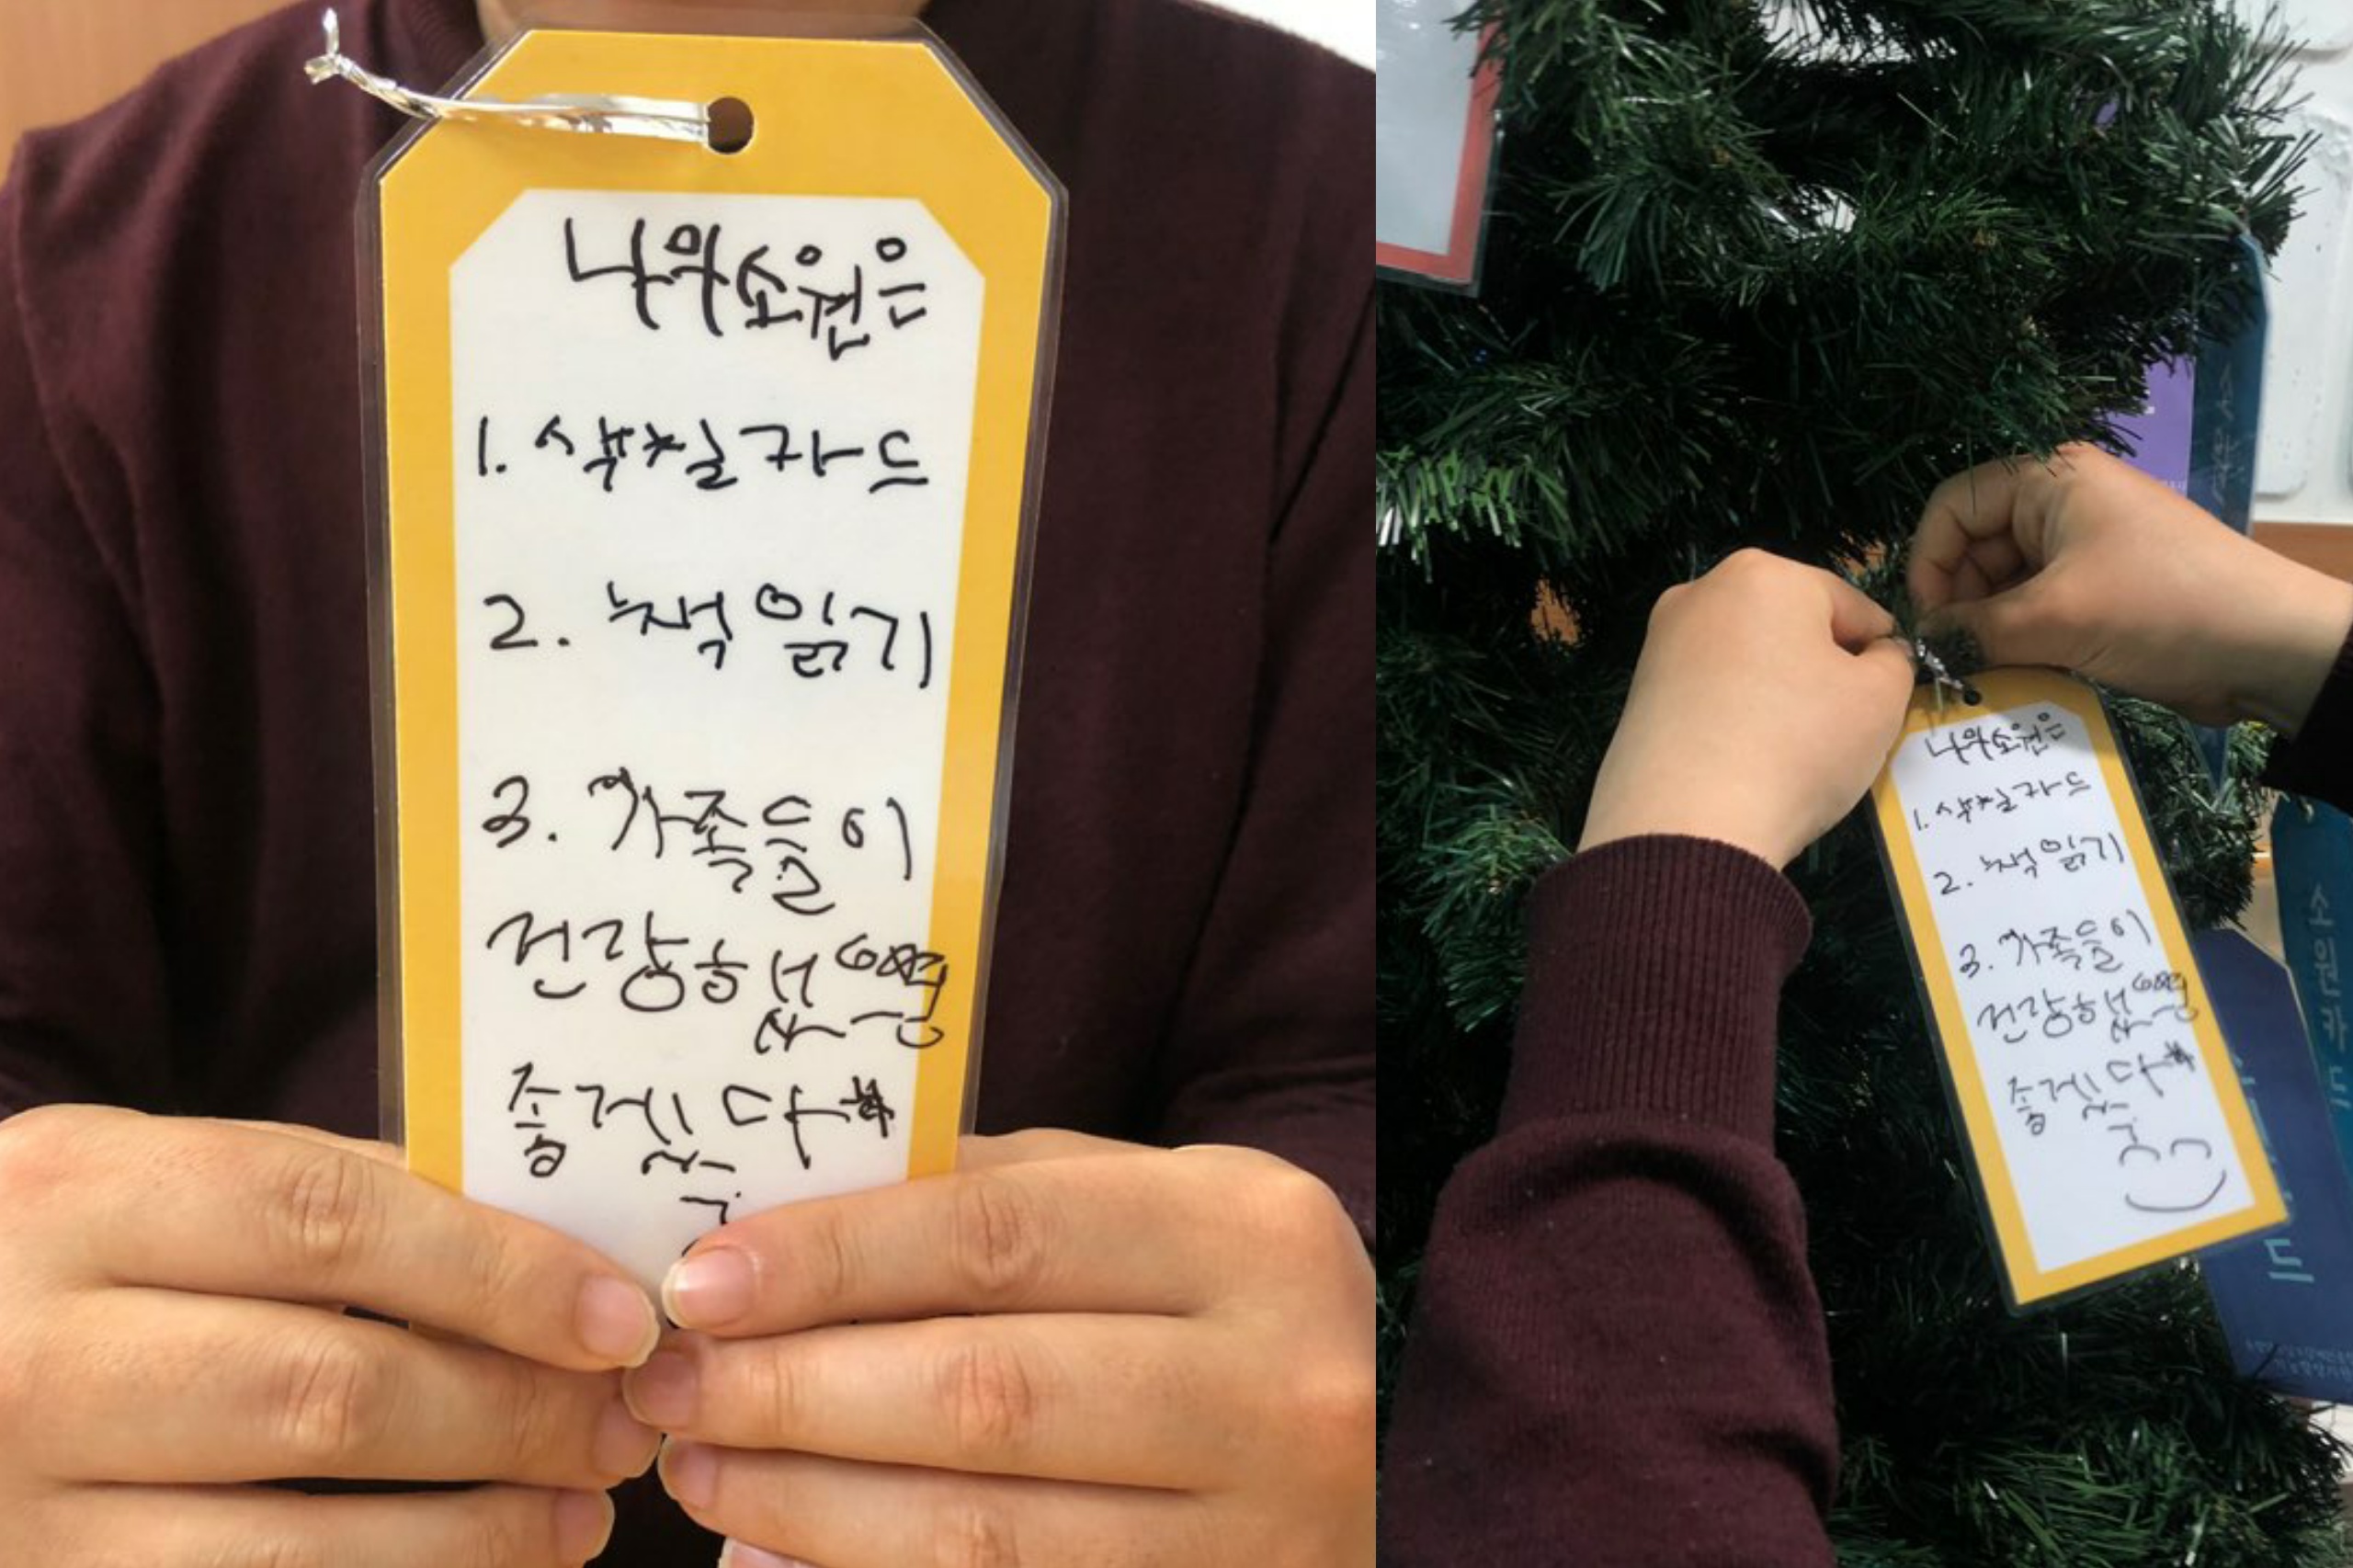 나의소원은
1. 색칠카드
2. 책 읽기
3. 가족들이
건강했으면
좋겠다
나의소원은
1. 색칠카드
2. 책 읽기
3. 가족들이
건강했으면
좋겠다
소원카드
드